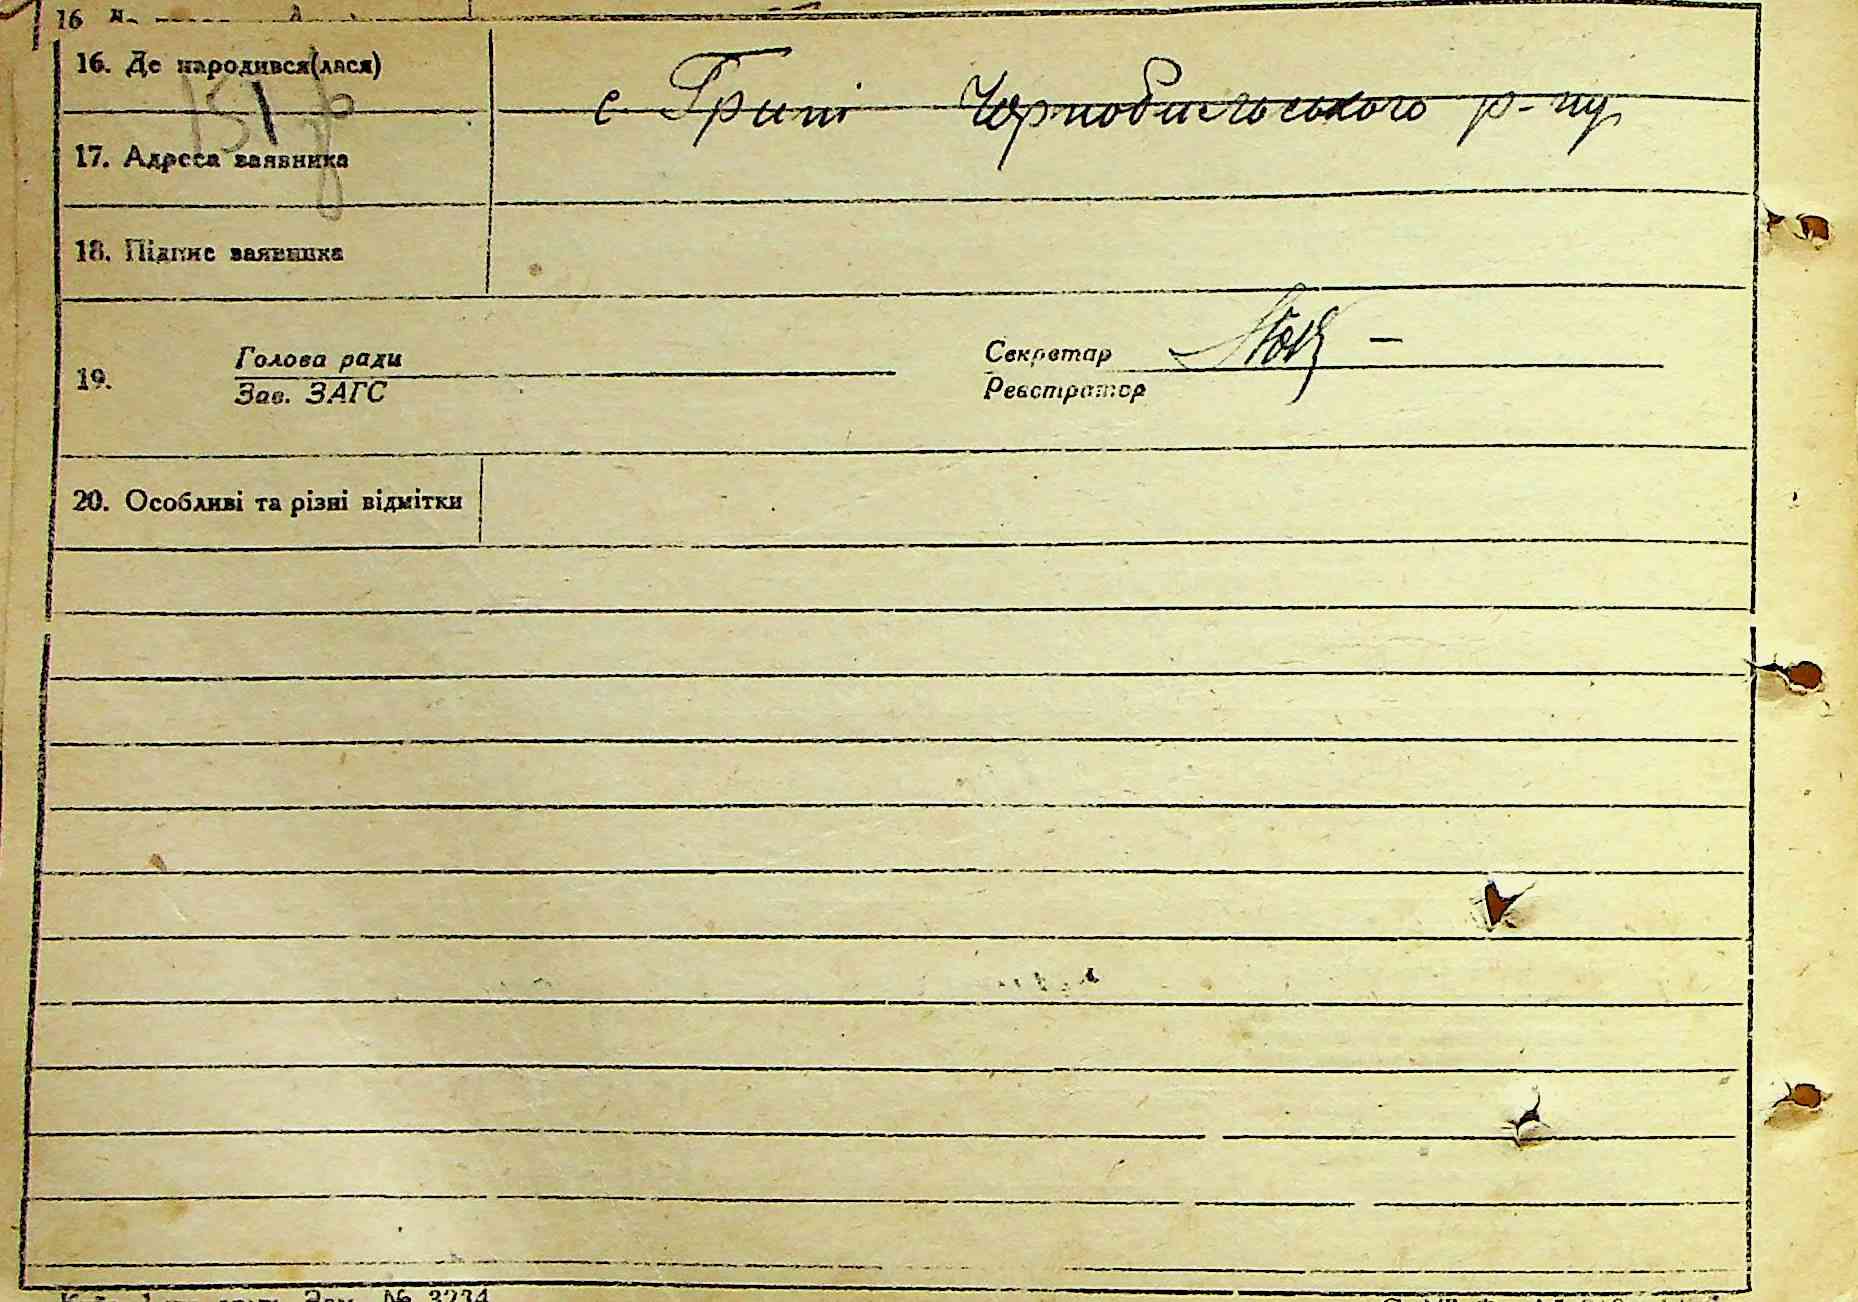 16
16. Де народився(лася)
с Грині Чорнобильського р-ну
151
17. Адреса заявника
18. Підпис заявника
19. Голова ради
Зав. ЗАГС
Секретар
Реєстратор
20. Особливі та різні відмітки
Зам. № 3234